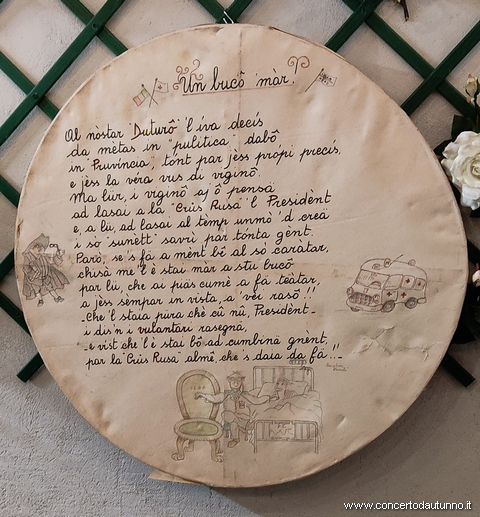 Un bucô màr!
Al nòstar "Duturô" 'l iva decis
da mètas in "pulìtica" dabô
in "Pruvincia", tònt par jèss pròpi precis,
e jèss la véra vus di vrginô.
Ma lùr, i vrginô aj ô pensà
ad lasai a la "Crùs Rusa" 'l Presidènt
e, a lü, ad lasai al tèmp unmò 'd creà
i sò "sunètt" savrì par tònta gènt.
Parò, se's fà a mènt bé al sò caràtar,
chisà me 'l è stai màr a stu bucô
par lü, che ai piàs cumè a fà teàtar,
a jèss sempar in vista, a 'vèi rasô!!
-Che 'l staia püra chè cü nü, Presidènt-
i dis'n i vuluntari rasegnà,
-e vist che 'l è stai bô ad cumbinà gnènt,
par la "Crùs Rusa" almê, che s daia da fà!!-
www.concertodautunno.it